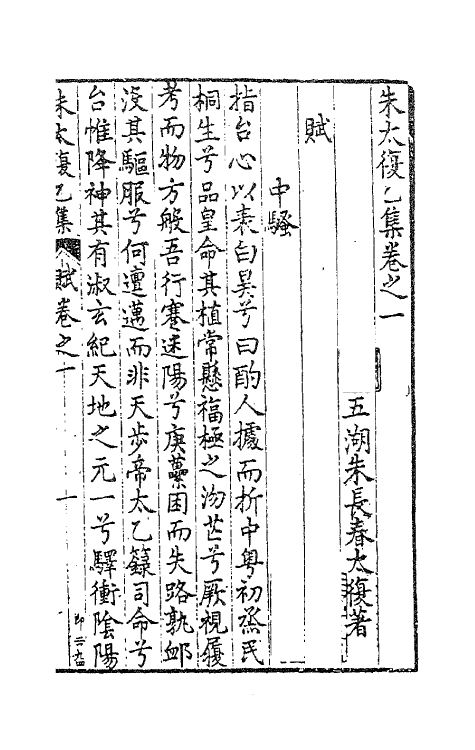 朱太復乙集卷之一
五湖朱長春太復著
賦
中騷
指台心以表白昊兮曰酌人據而折中粤初烝民
桐生兮品皇命其植常懸福極之沕茫兮厥視履
考而物方般吾行蹇迷陽兮庚蘽困而失路孰卹
沒其驅服兮何邅邁而非天步帝太乙籙司命兮
台惟降神其有淑玄紀天地之元一兮驛衝陰陽
朱太復乙集
賦卷之一
一